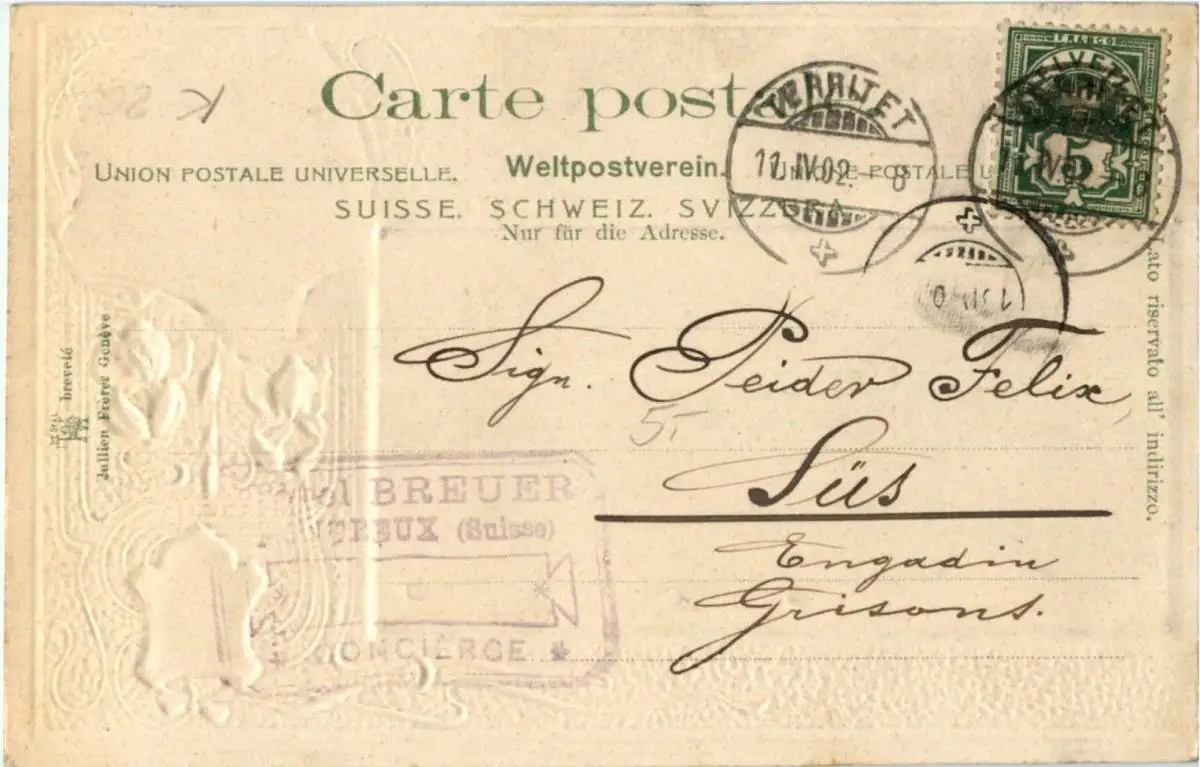 Carte posta
UNION POSTALE UNIVERSELLE. Weltpostverein. UNIONE POSTALE U
SUISSE. SCHWEIZ. SVIZZERA
Nur für die Adresse.
TERRITET
11.IV.02.-8
FRANCO
HELVETIA
5
TERRITET
11.IV.02.-8
Lato riservato all' indirizzo.
breveté
Jullien Frères Genève
K
Sign. Peider Felix,
5.-
Süs
Engadin
Grisons.
BREUER
(Suisse)
* CONCIERGE *